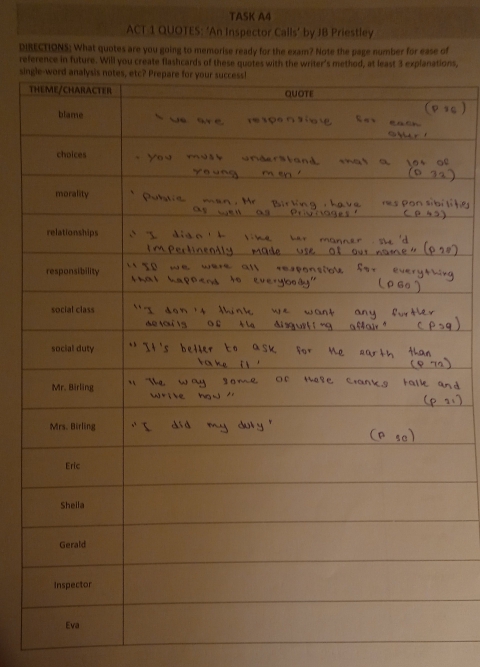 TASK A4
ACT 1 QUOTES: 'An Inspector Calls' by JB Priestley
DIRECTIONS: What quotes are you going to memorise ready for the exam? Note the page number for ease of
reference in future. Will you create flashcards of these quotes with the writer's method, at least 3 explanations,
single-word analysis notes, etc? Prepare for your success!
THEME/CHARACTER QUOTE
blame (P 56)
' we are responsible for each
other'
choices ' you must understand that a lot of
young men' (P 32)
morality ' Public men, Mr Birling, have responsibilities
as well as privileges'
relationships " I didn't like her manner. she'd
impertinently made use of our name"
responsibility "If we were all responsible for everything
that happend to everybody" (P 60)
social class "I don't think we want any further
details of the disgusting affair"
social duty " It's better to ask for the earth than
take it'
Mr. Birling " The way some of these cranks talk and
write now "
Mrs. Birling "I did my duty"
Eric
Sheila
Gerald
Inspector
Eva